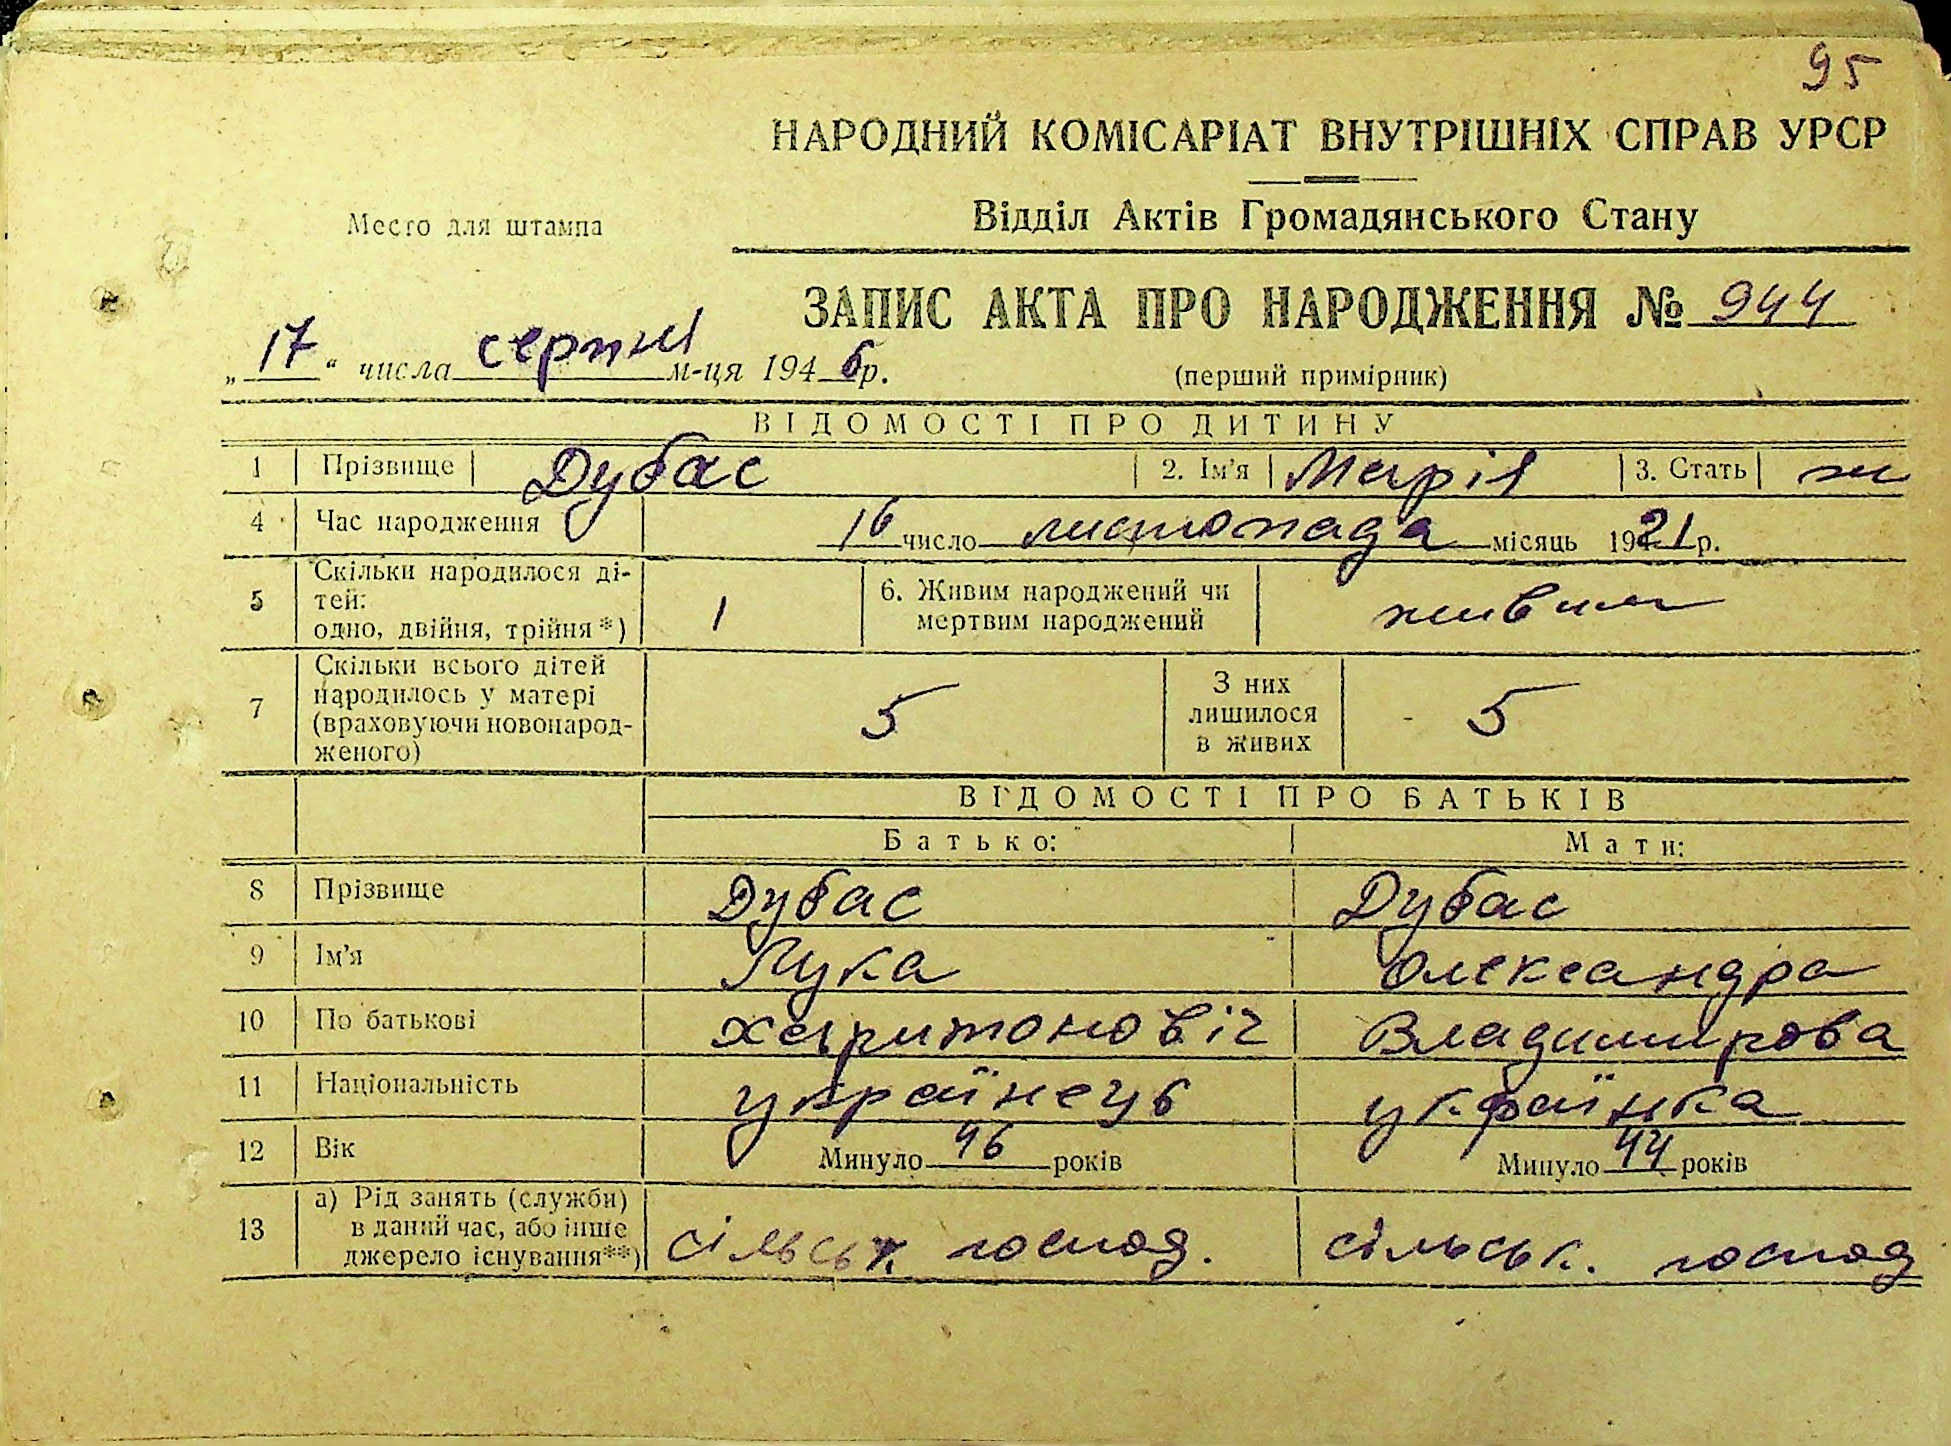 95
НАРОДНИЙ КОМІСАРІАТ ВНУТРІШНІХ СПРАВ УРСР
Место для штампа
Відділ Актів Громадянського Стану
ЗАПИС АКТА ПРО НАРОДЖЕННЯ № 944
„17“ числа серпня м-ця 1946 р.
(перший примірник)
ВІДОМОСТІ ПРО ДИТИНУ
1 Прізвище Дубас 2. Ім'я Марія 3. Стать ж
4 Час народження 16 число листопада місяць 1921 р.
5 Скільки народилося ді-
тей:
одно, двійня, трійня*) 1 6. Живим народжений чи
мертвим народжений живим
7 Скільки всього дітей
народилось у матері
(враховуючи новонарод-
женого) 5 З них
лишилося
в живих 5
ВІДОМОСТІ ПРО БАТЬКІВ
Батько: Мати:
8 Прізвище Дубас Дубас
9 Ім'я Лука Олександра
10 По батькові Харитоновіч Владимирова
11 Національність українець українка
12 Вік Минуло 46 років Минуло 44 років
13 а) Рід занять (служби)
в даний час, або інше
джерело існування**) сільськ. господ. сільськ. господ